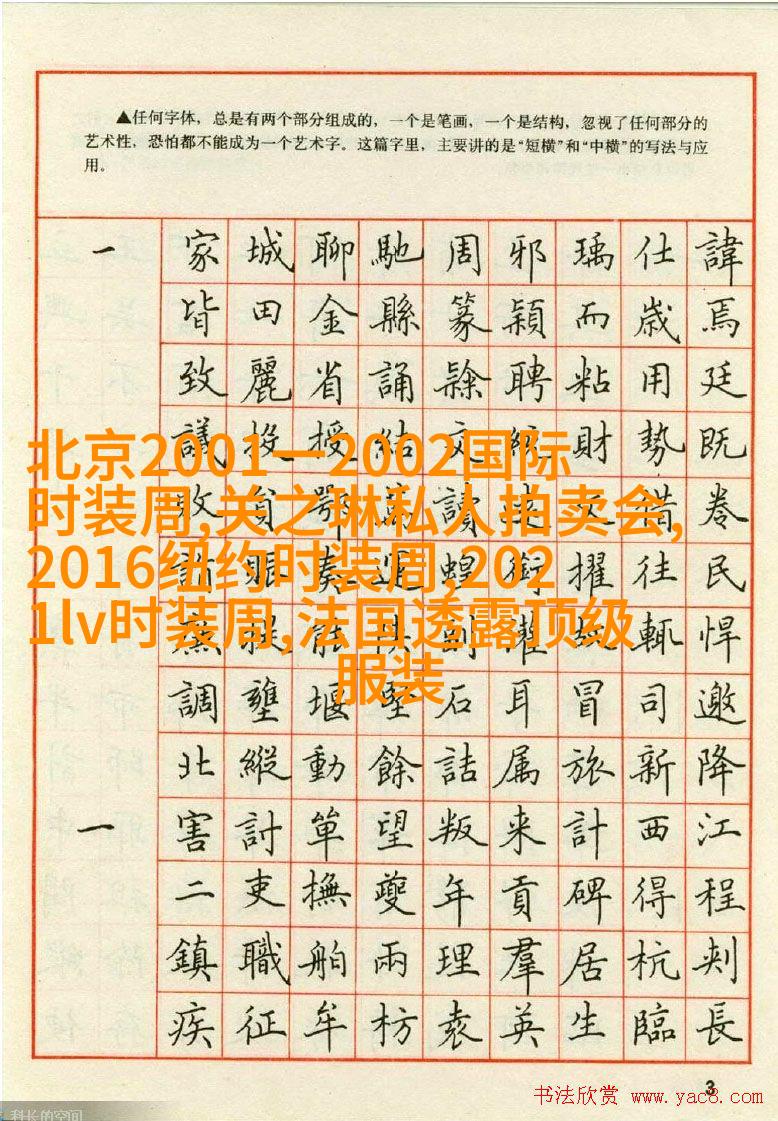 ▲任何字体，总是有两个部分组成的，一个是笔画，一个是结构，忽视了任何部分的
艺术性，恐怕都不能成为一个艺术字。这篇字里，主要讲的是“短横”和“中横”的写法与应
用。
一 家 城 聊 馳 周 邪 瑀 仕 諱
皆 田 金 縣 篆 穎 而 歲 焉
致 麗 省 誦 聘 粘 用 廷
議 投 授 結 交 統 財 勢 既
北京2001—2002国际
时装周,关之琳私人拍卖会,
2016纽约时装周,202
1lv时装周,法国透露顶级
服装
敗 貧 鄂 讀 借 卷
賑 奏 蝗 銜 擢 往 民
輒 悍
調 壅 堰 堅 石 耳 冒 司 邀
北 縱 動 餘 詰 属 旅 新 降
一 害 討 單 望 叛 来 計 西 江
二 吏 撫 夔 年 貢 碑 得 程
鎮 職 舶 兩 理 羣 居 杭 刺
疾 征 牟 枋 袁 英 生 臨 長
3
书法欣赏 www.yac8.com
科长的空间